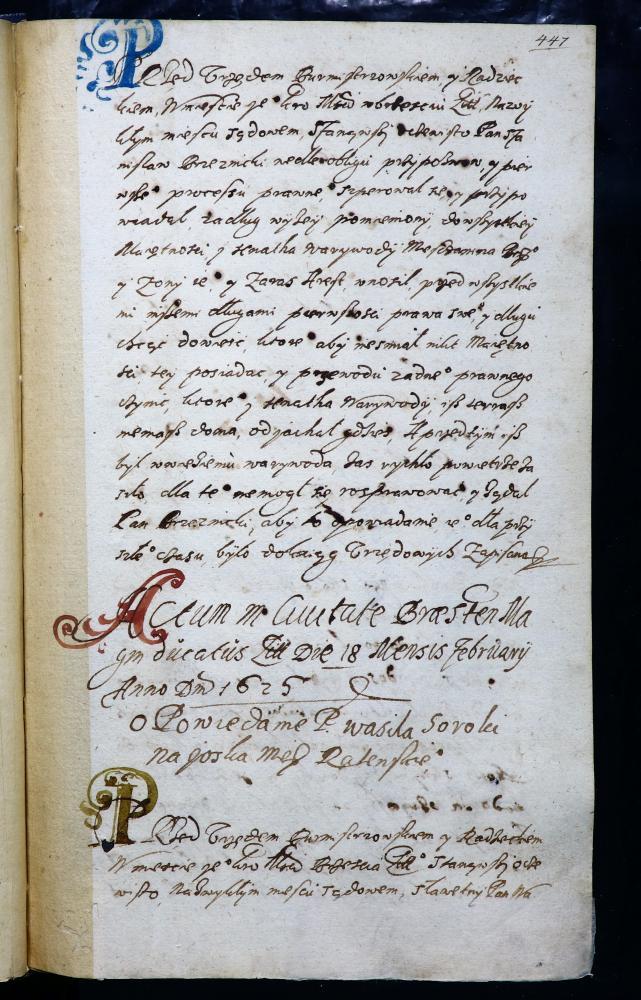 447
PRzed Urzędem Burmistrzowskiem y Radziec
kiem, W miescie Je° Kro Mści w brzesciu Litt, Na zwy
kłym miescu sądowem, Stanąwszy oczewisto Pan Sta
nisław Brzeznicki wedle obligu przypozwow, y pier
wsze° processu prawne° szperował się, y przypo
wiadał, za dług wyżey pomieniony, do wszytkiey
Maiętnosci, Ihnatka Warywody Mesczanina Brzes°
y Zony ie°, y Zaraz Arest, wnosił, przed wszystkie
mi inszemi długami pierwszosci prawa swe°, y długu
chcąc dowiesc, ktore, aby niesmiał nikt Maiętno
sci, tey posiadac, y przewodu zadne° prawnego
czynic, ktore° Ihnatka Warywody, isz terrazs
niemasz doma, odjachał gdzies, A przedtym isz
był w wiezieniu warywoda, zas rychło powietrze za
szło, dla te° niemogł się rosprawowac, y ządał
Pan Brzeznicki, aby to opowiadanie ie° dla przy
szłe° czasu, było do ksiąg Urzędowych Zapisano
Actum in Ciuitate Bræsten Ma
gni ducatus Litt Die 18 Mensis february
Anno Dni 1625
OPowiedanie P. wasila Soroki
na Joska Mesz Ratenskie°
PRzed Urzędem Burmistrzowskiem y Radzieckiem
W miescie Je° Kro Mści Brzesciu Litt° Stanąwszy ocze
wisto, Na zwykłym miescu sądowem, sławetny Pan Wa